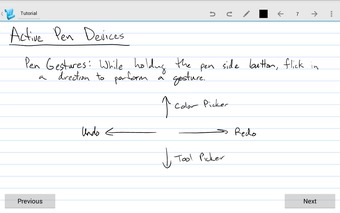 Tutorial
7
Active Pen Devices
Pen Gestures: While holding the pen side button, flick in
a direction to perform a gesture.
Color Picker
Undo
Redo
Tool Picker
Previous
Next